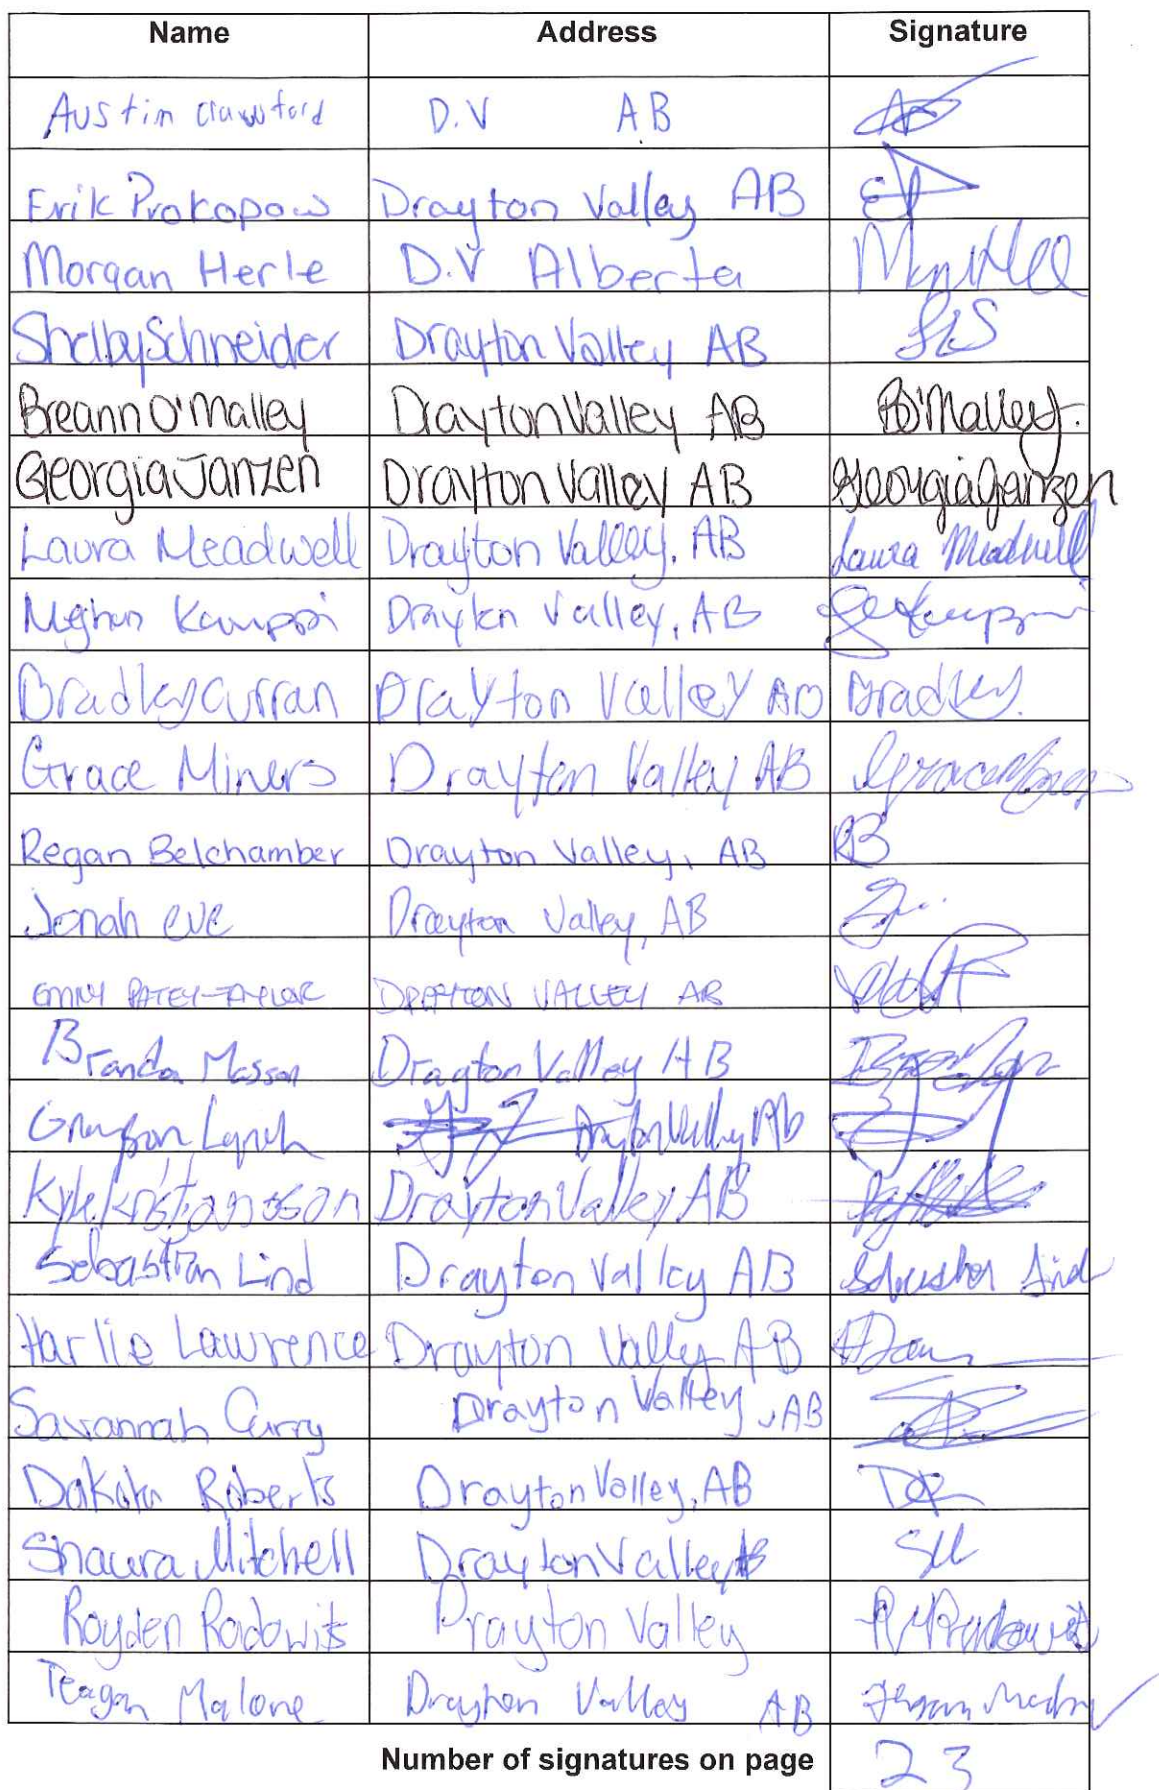 Name Address Signature
Austin Crawford D.V AB
Erik Prokopow Drayton Valley AB EP
Morgan Herle D.V Alberta
Shelby Schneider Drayton Valley AB SLS
Breann O'Malley Drayton Valley AB BO'Malley
Georgia Janzen Drayton Valley AB Georgia Janzen
Laura Meadwell Drayton Valley, AB Laura Meadwell
Meghan Kamppi Drayton Valley, AB
Bradley Curran Drayton Valley AB Bradley
Grace Miners Drayton Valley AB Grace Miners
Regan Belchamber Drayton Valley, AB RB
Jonah eve Drayton Valley, AB
EMILY PATEY-TAYLOR DRAYTON VALLEY AB
Brandon Masson Drayton Valley AB
Grayson Lynch Drayton Valley Ab
Kyle Kristjansson Drayton Valley AB
Sebastian Lind Drayton Valley AB Sebastian Lind
Harlie Lawrence Drayton Valley AB
Savannah Curry Drayton Valley, AB
Dakota Roberts Drayton Valley, AB DR
Shaura Mitchell Drayton Valley AB SM
Royden Radowits Drayton Valley R Radowits
Teagan Malone Drayton Valley AB Teagan Malone
Number of signatures on page 23